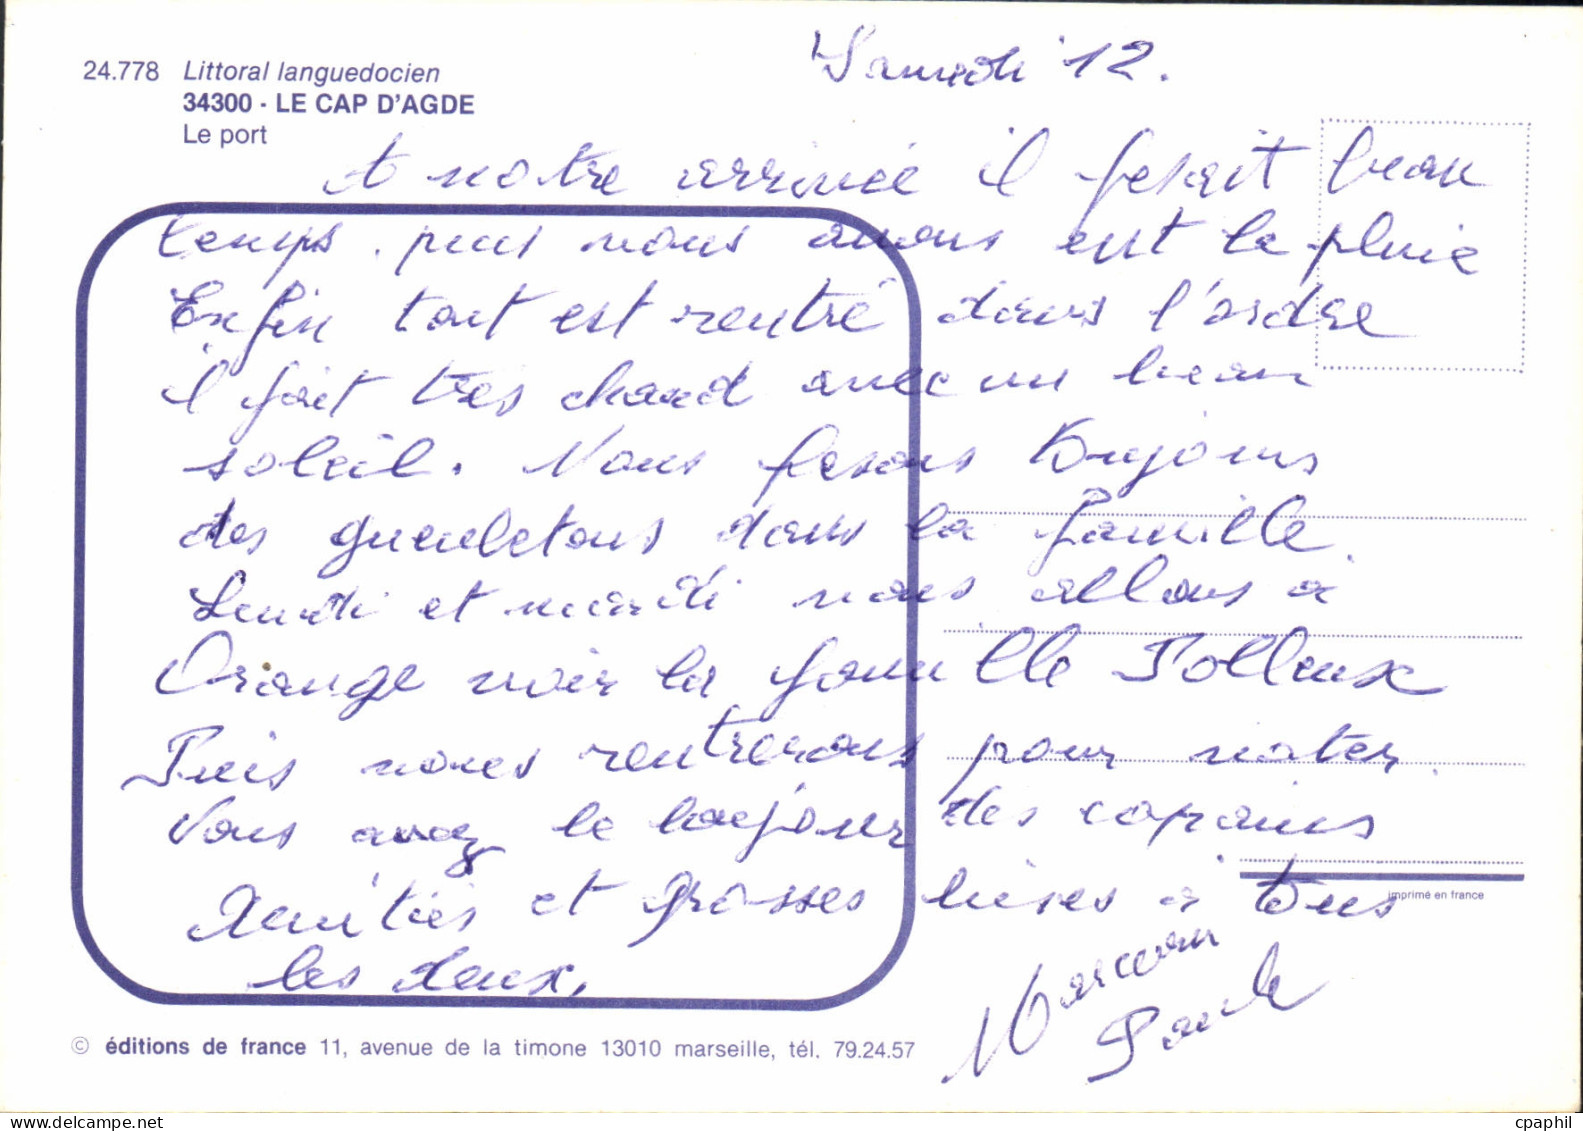 Samedi 12.
24.778 Littoral languedocien
34300 - LE CAP D'AGDE
Le port
A notre arrivée il fesait beau
temps. puis nous avons eut la pluie
Enfin tout est rentré dans l'ordre
il fait très chaud avec un beau
soleil. Nous fesons toujours
des gueuletons dans la famille.
Lundi et mardi nous allons à
Orange voir la famille Polleux
Puis nous rentrerons pour voter.
Vous avez le bonjour des copains
Amitiés et grosses bises à tous
les deux.
Paule
imprimé en france
© éditions de france 11, avenue de la timone 13010 marseille, tél. 79.24.57
cpaphil